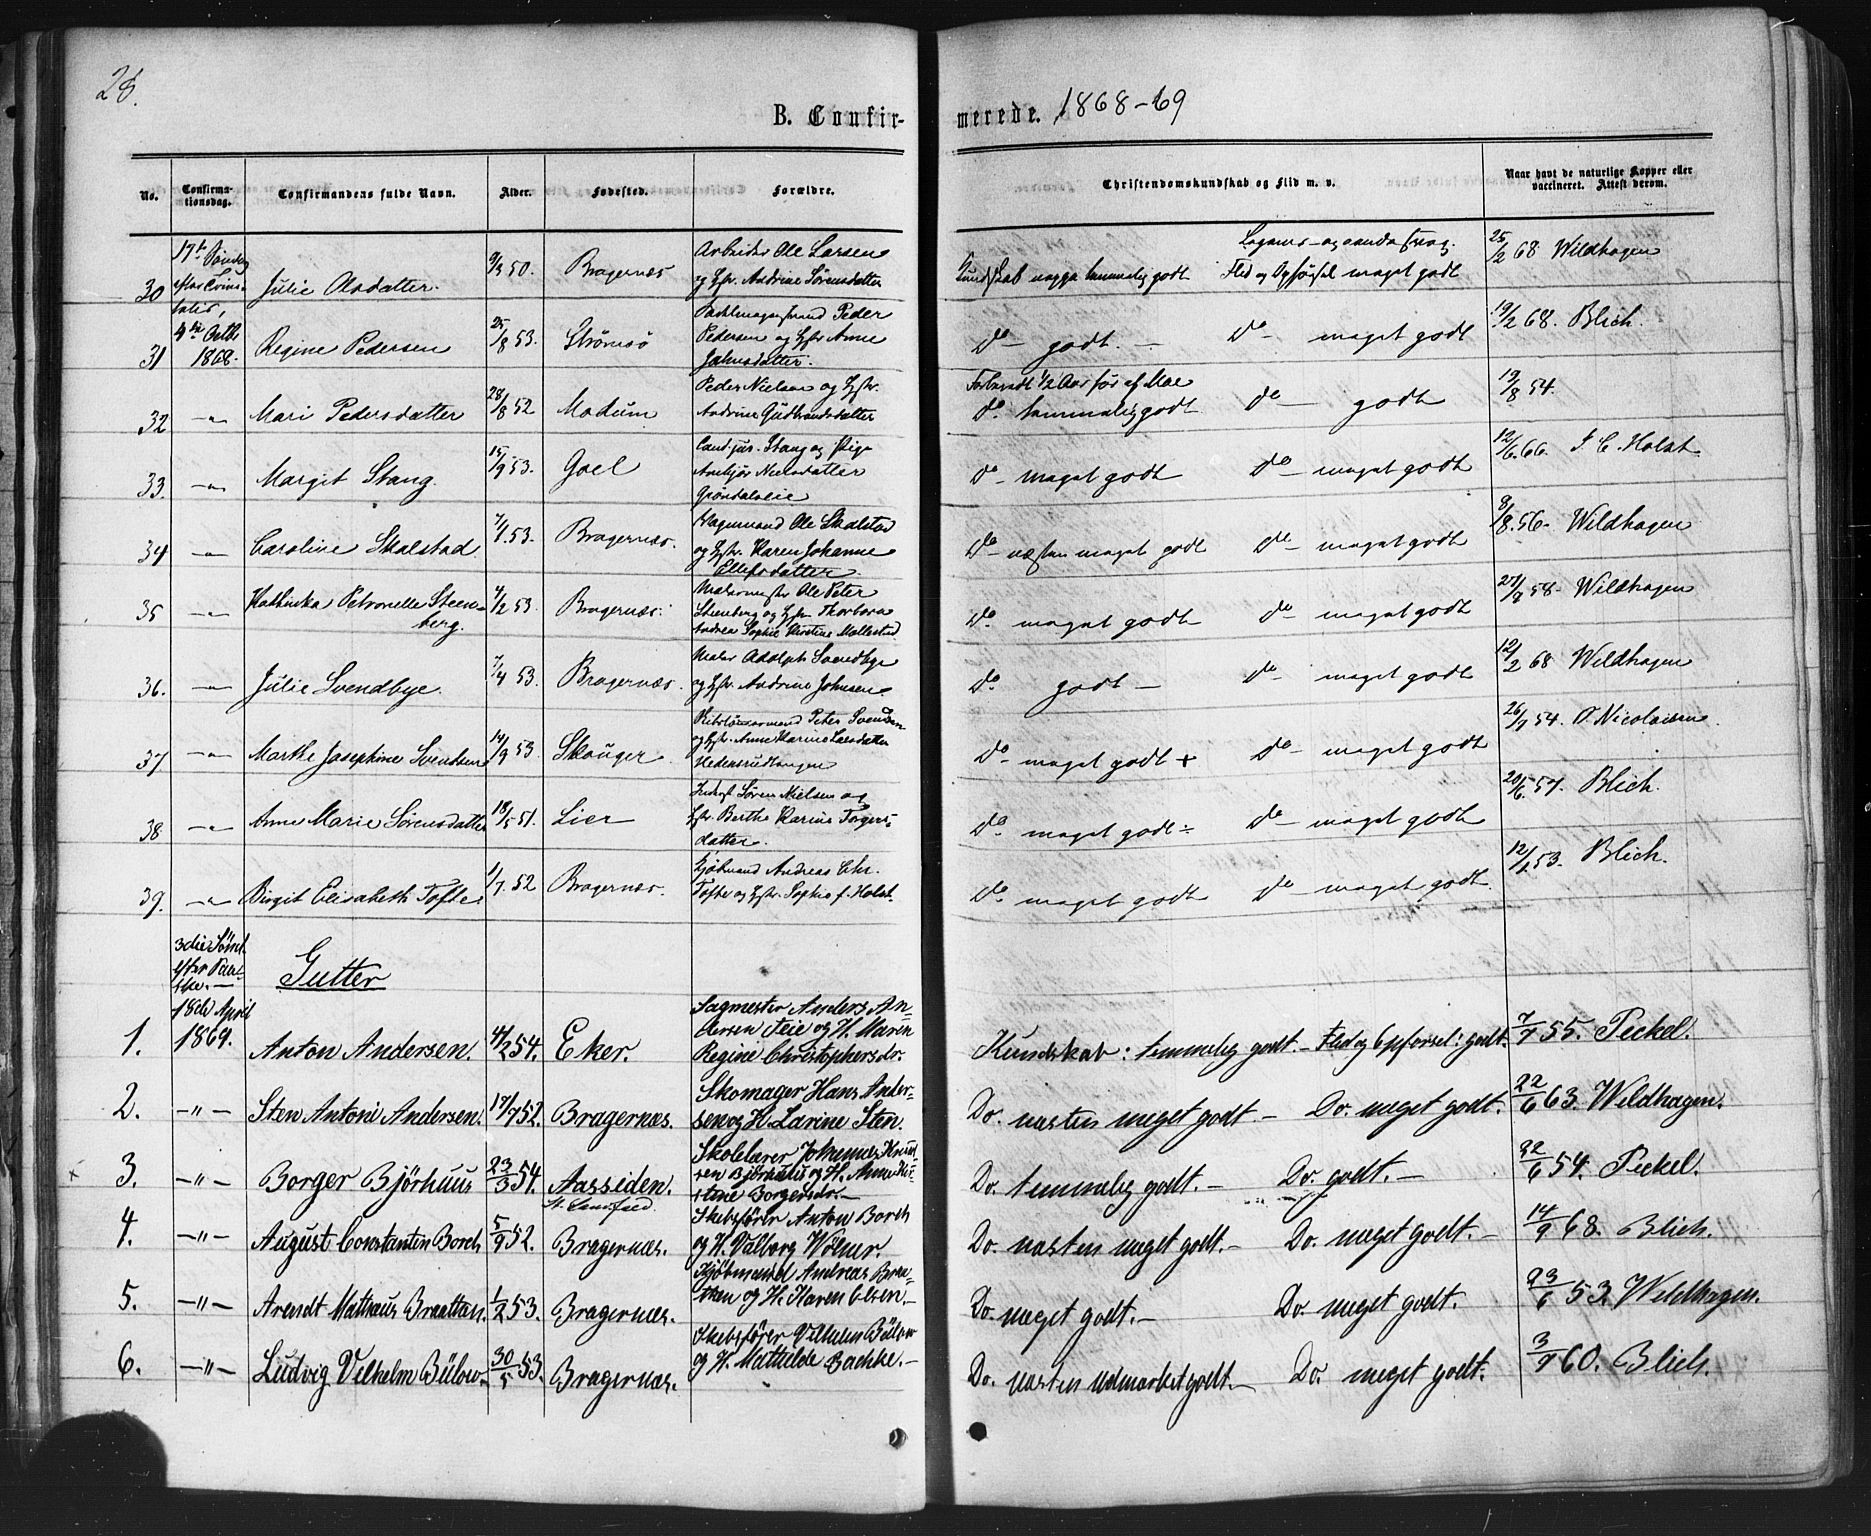 28.
B. Confirmerede. 1868-69
No.
Confirmationsdag.
Confirmandens fulde Navn.
Alder.
Fødested.
Forældre.
Christendomskundskab og Flid m. v.
Naar havt de naturlige Kopper eller vaccineret. Attest derom.
30 17de Søndag efter Trinitatis, 4de Octbr 1868. Julie Olsdatter. 9/3 50. Bragernæs Arbeider Ole Larsen og Hstr. Andrine Sörensdatter Kundskab temmelig godt Flid og Opførsel meget godt 25/2 68 Wildhagen
31 Regine Pedersen 25/8 53. Strømsö Peder Pedersen og Hstr Anne Johnsdatter. Do - godt. - Do - meget godt 19/2 68. Blich.
32 -"- Mari Pedersdatter 28/8 52 Modum Peder Nielsen og Hstr. Andrine Gudbrandsdatter Do. temmelig godt Do - godt 19/8 54.
33. -"- Margit Stang. 15/9 53. Goel Cand. jur. Stang og Pige Nielsdatter Do - meget godt Do - meget godt 12/6 66. J. C. Holst.
34 -"- Caroline Skalstad 7/1 53. Bragernæs. Ole Skalstad og Hstr. Karen Johanne Ellefsdatter Do - næsten meget godt Do - meget godt 9/8 56 - Wildhagen
35 -"- Kathinka Petronelle Steenberg. 4/2 53. Bragernæs. Malermester Ole Peter Steenberg og Hstr Thorbora Andrea Sophie Kirstine Mollestad Do. meget godt Do - meget godt 27/8 58 - Wildhagen
36. -"- Julie Svendbye. 7/4 53. Bragernæs. Maler Adolph Svendbye og Hstr. Andrine Johnsen. Do. godt - Do - meget godt 12/2 68 Wildhagen
37. -"- Marthe Josephine Svendsen 14/9 53 Skouger Peter Svendsen og Hstr. Anne Karine Larsdatter Do - meget godt + Do - meget godt 26/7 54. O. Nicolaisen.
38. -"- Anne Marie Sörensdatter 18/5 51. Lier Søren Nielsen og Hstr. Berthe Karine Torgersdatter. Do. meget godt ÷ Do - meget godt 20/6 57. Blich.
39. -"- Birgit Elisabeth Tofte 1/7 52 Bragernæs. Kjøbmand Andreas Chr. Tofte og Hstr. Sophie f. Holst. Do. meget godt Do - meget godt 12/1 53. Blich.
3die Sönd. efter Paaske. -
18de April 1869.
Gutter
1. Anton Andersen. 4/2 54. Eker. Sagmester Anders Andersen Feie og H. Maren Regine Christophersdr. Kundskab: temmelig godt. - Flid og Opförsel: godt. 7/7 55. Peckel.
2. -"- Sten Antoni Andersen. 17/7 52. Bragernæs. Skomager Hans Andersen og H. Larine Sten. Do. næsten meget godt. - Do. meget godt. 22/6 63. Wildhagen.
× 3. -"- Borger Björhuus 23/3 54. Aassiden. Skolelærer Johannes Knudsen Björhuus og H. Anne Kistine Borgersdr. - Do. temmelig godt. - Do. godt. - 22/6 54. Peckel.
4. -"- August Constantin Borch 5/9 52. Bragernæs. Skibsförer Anton Borch og H. Valborg Wölner. Do. næsten meget godt. - Do. meget godt. - 14/9 68. Blich.
5. -"- Arendt Mathæus Braathen. 1/2 53. Bragernæs. Kjöbmand Andreas Braathen og H. Karen Olsen. - Do. meget godt. - Do. meget godt. 23/6 53 Wildhagen.
6. -"- Ludvig Vilhelm Bülow. 30/5 53. Bragernæs. Skibsförer Vilhelm Bülow og H. Mathilde Bachke. - Do. næsten udmærket godt. - Do. meget godt. 3/7 60. Blich.